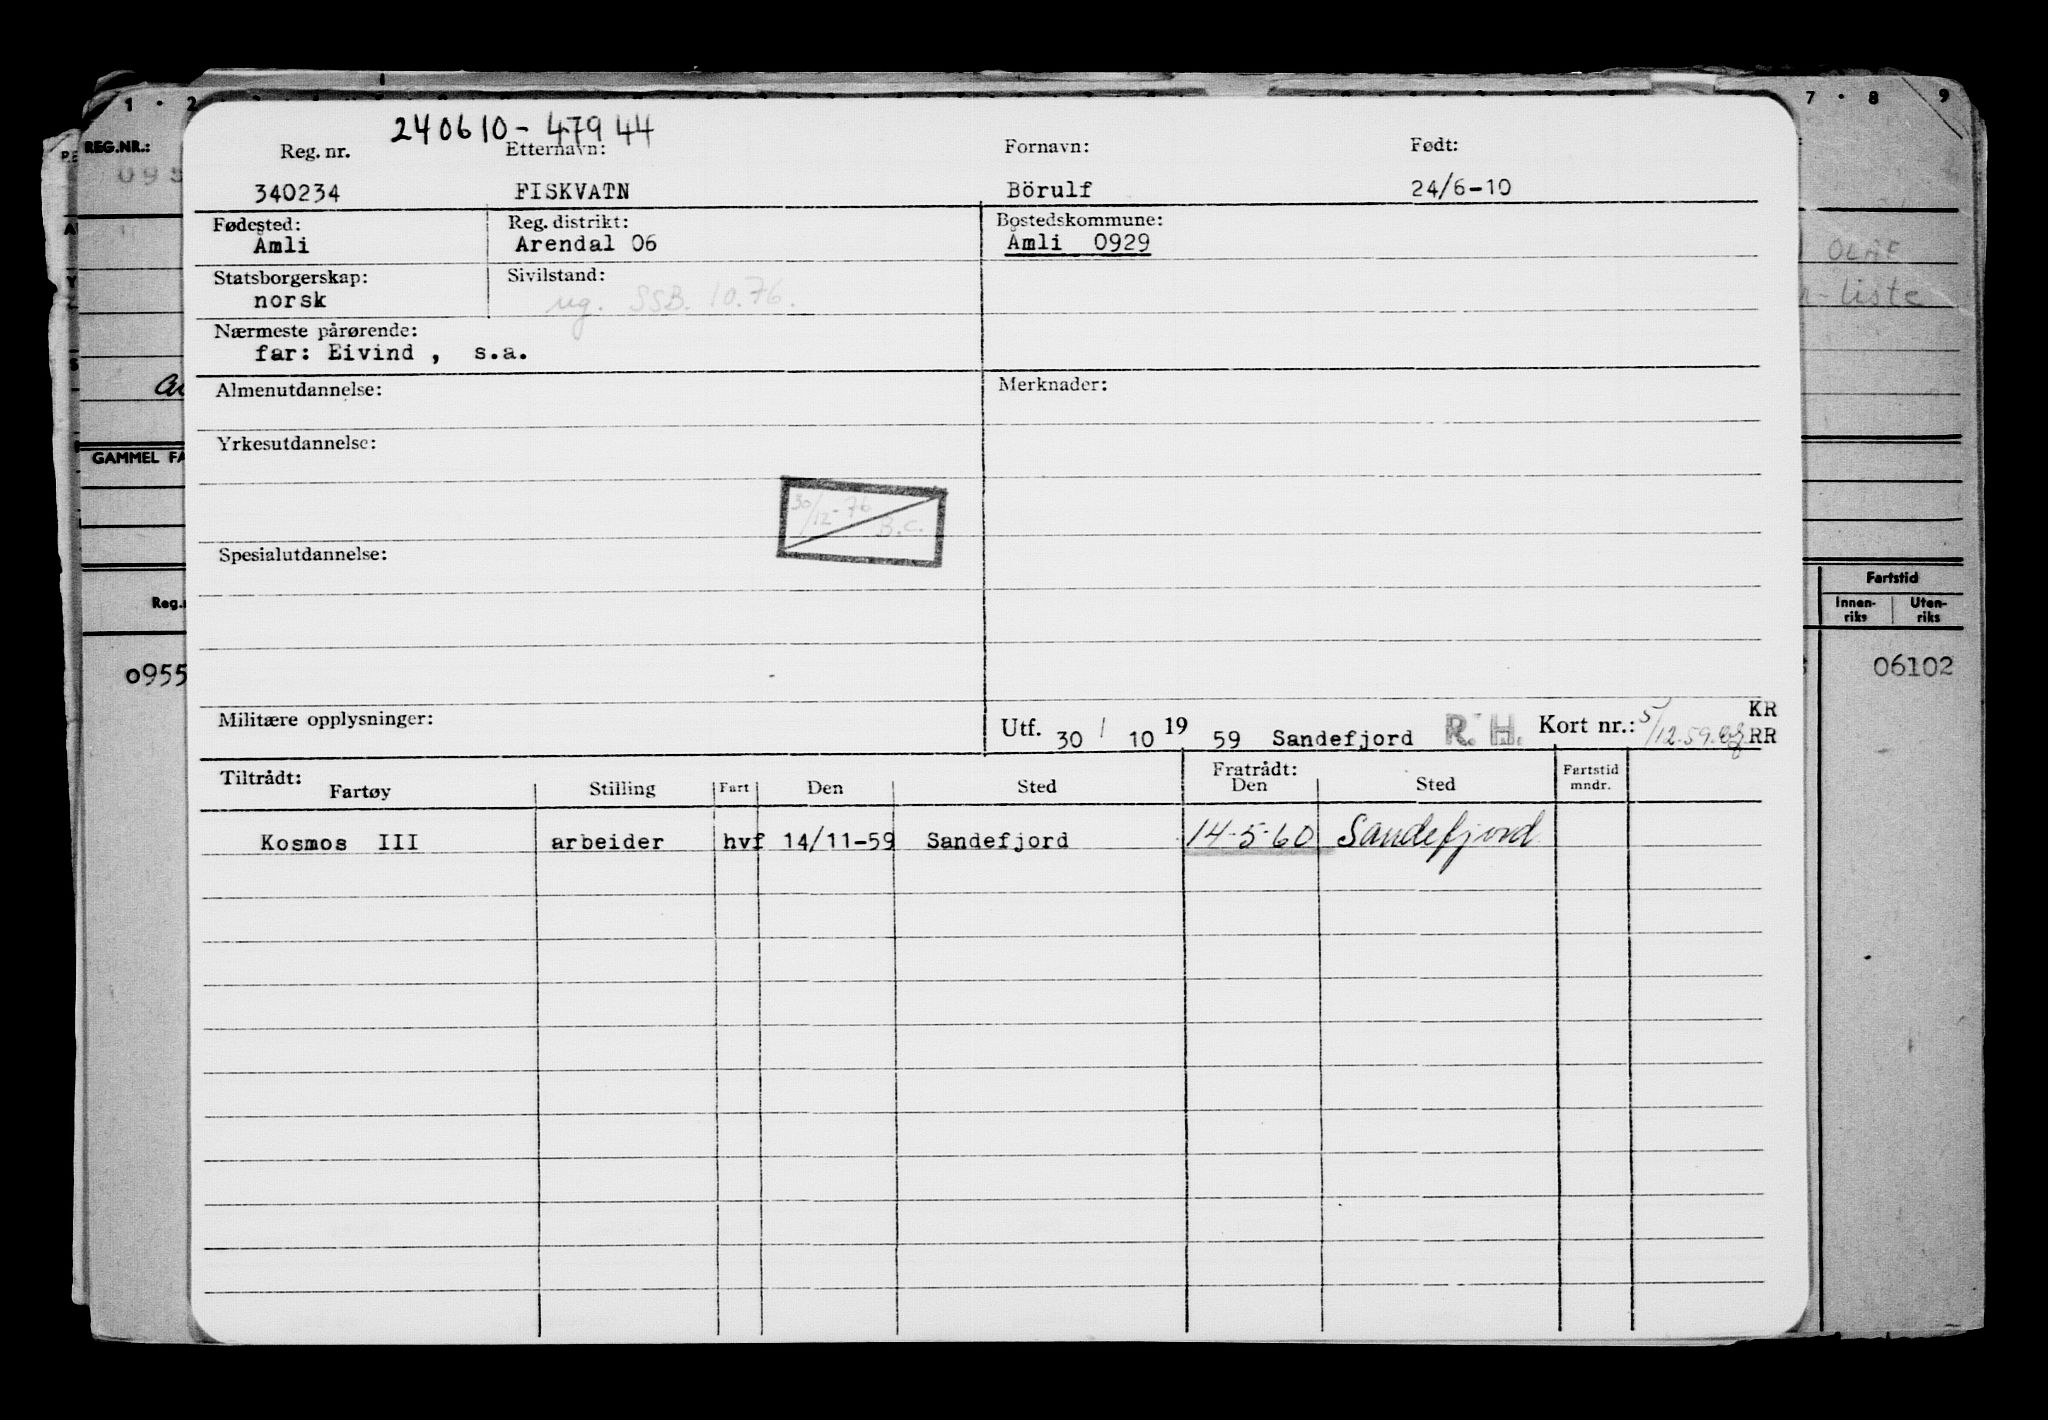 1 · 2
7 · 8 9
REG.NR.:
240610-47944
Reg. nr. Etternavn: Fornavn: Født:
340234 FISKVATN Börulf 24/6-10
Fødested: Reg. distrikt: Bostedskommune:
Åmli Arendal 06 Åmli 0929
Statsborgerskap: Sivilstand:
norsk ug. SSB. 10.76.
Nærmeste pårørende:
far: Eivind , s.a.
OLAF
liste
Almenutdannelse: Merknader:
Yrkesutdannelse:
GAMMEL FA
30/12-76 B.C.
Spesialutdannelse:
Fartstid
Innen-riks Uten-riks
Reg.
0955
06102
Militære opplysninger: Utf. 30 / 10 19 59 Sandefjord R. H. Kort nr.: 5/12.59. KR
RR
Tiltrådt: Fratrådt:
Fartøy Stilling Fart Den Sted Den Sted Fartstid mndr.
Kosmos III arbeider hvf 14/11-59 Sandefjord 14-5-60 Sandefjord